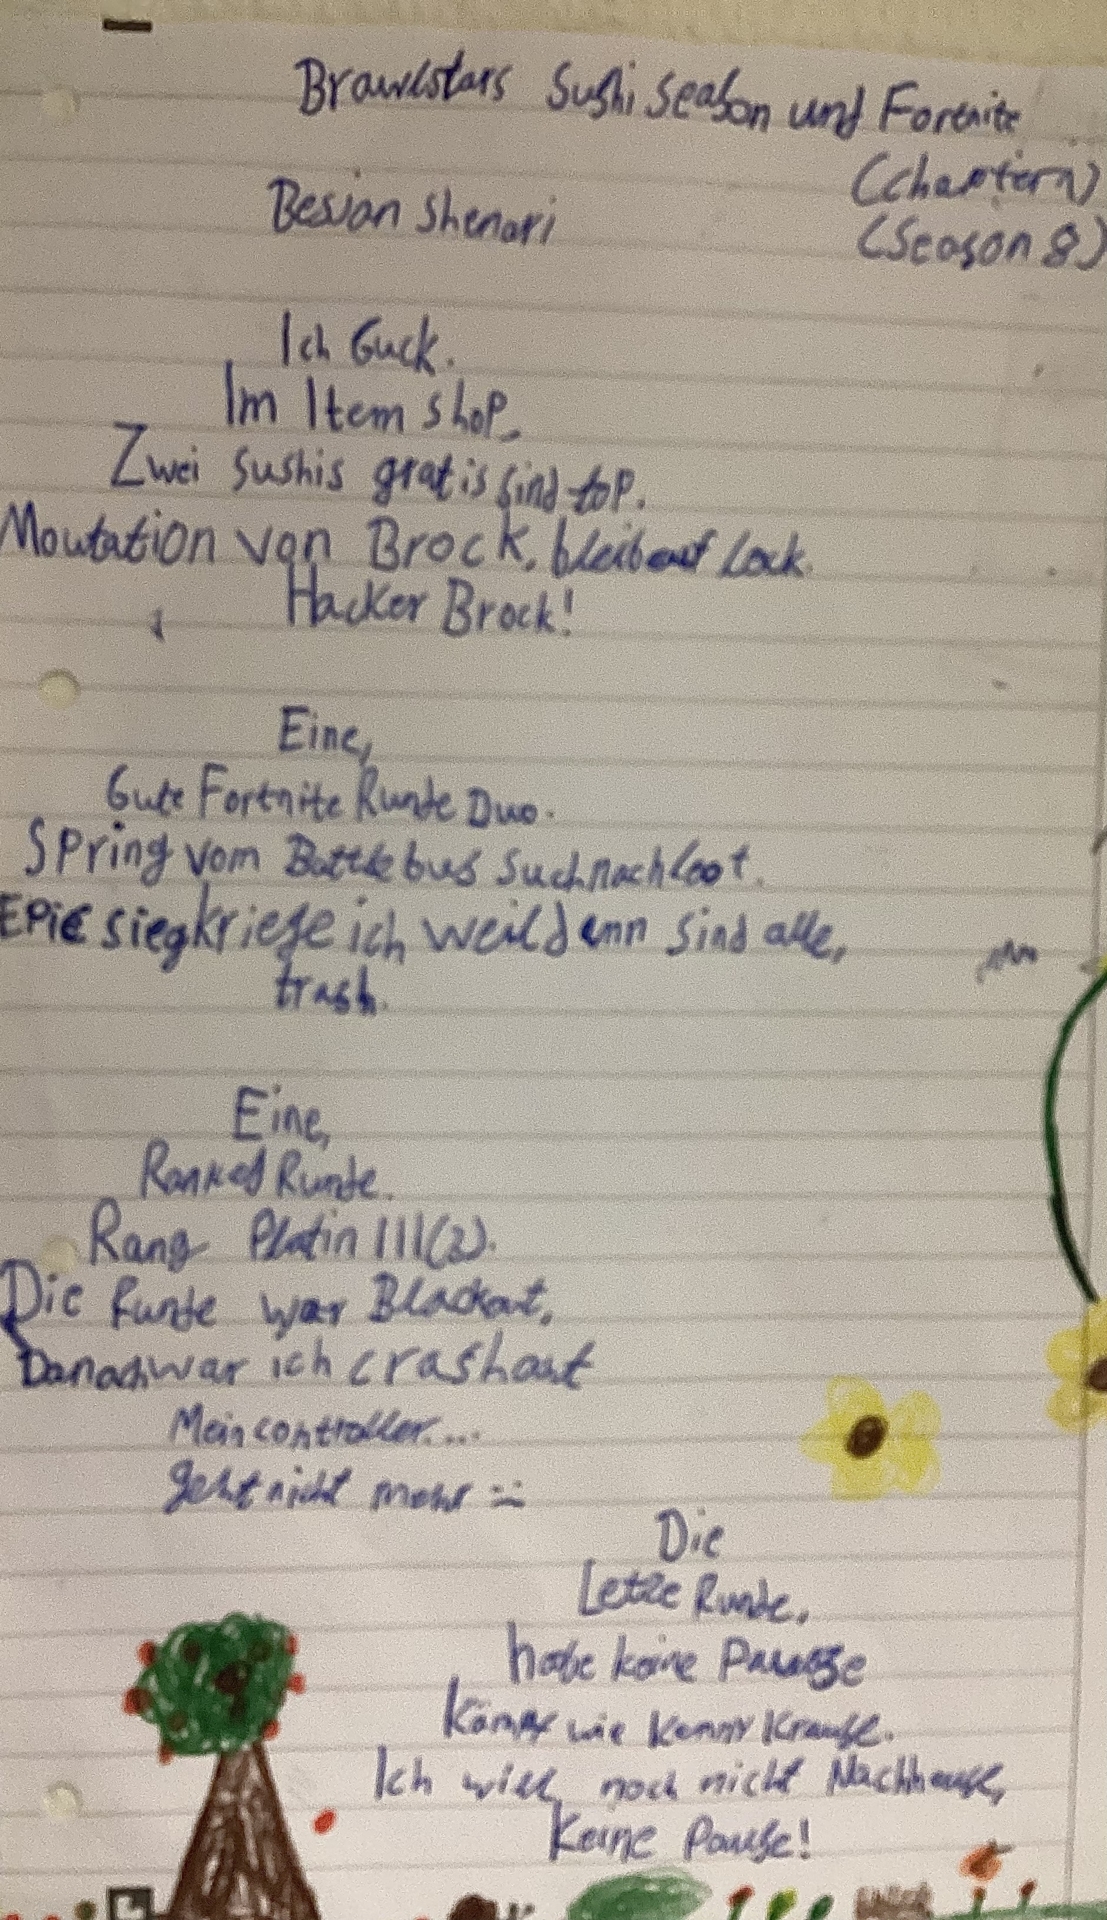 Brawlstars Sushi Season und Fortnite
(Season 8)
Besian Shenari
Ich Guck.
Im Item shop.
Zwei sushis gratis sind top.
Moutation von Brock, bleib auf Lock.
Hacker Brock!
Eine,
Gute Fortnite Runde Duo.
Spring vom Battlebus Such nach loot.
Epic sieg kriege ich weil dann sind alle,
trash.
Eine,
Ranked Runde.
Rang Platin III(3).
Die Runde war Blackout,
Danach war ich crashout
Mein controller....
geht nicht mehr :-
Die
Letze Runde,
habe keine Pause
Kämpf wie Kenny Krause.
Ich will noch nicht Nachhause,
Keine Pause!